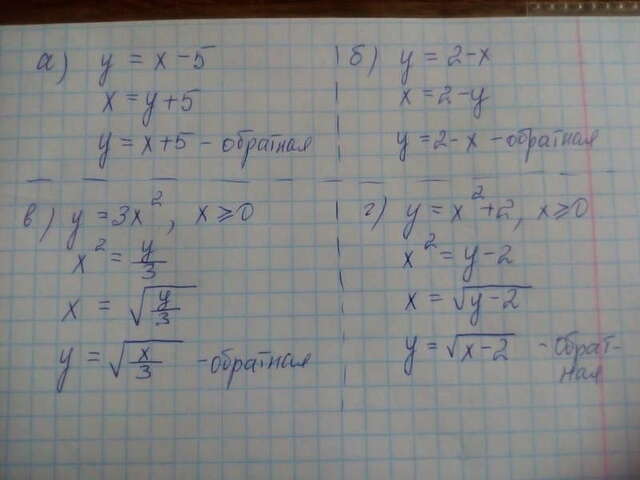 а) y = x - 5
x = y + 5
y = x + 5 - обратная
б) y = 2 - x
x = 2 - y
y = 2 - x - обратная
в) y = 3x², x ≥ 0
x² = y/3
x = √(y/3)
y = √(x/3) - обратная
г) y = x² + 2, x ≥ 0
x² = y - 2
x = √(y - 2)
y = √(x - 2) - обрат-
ная